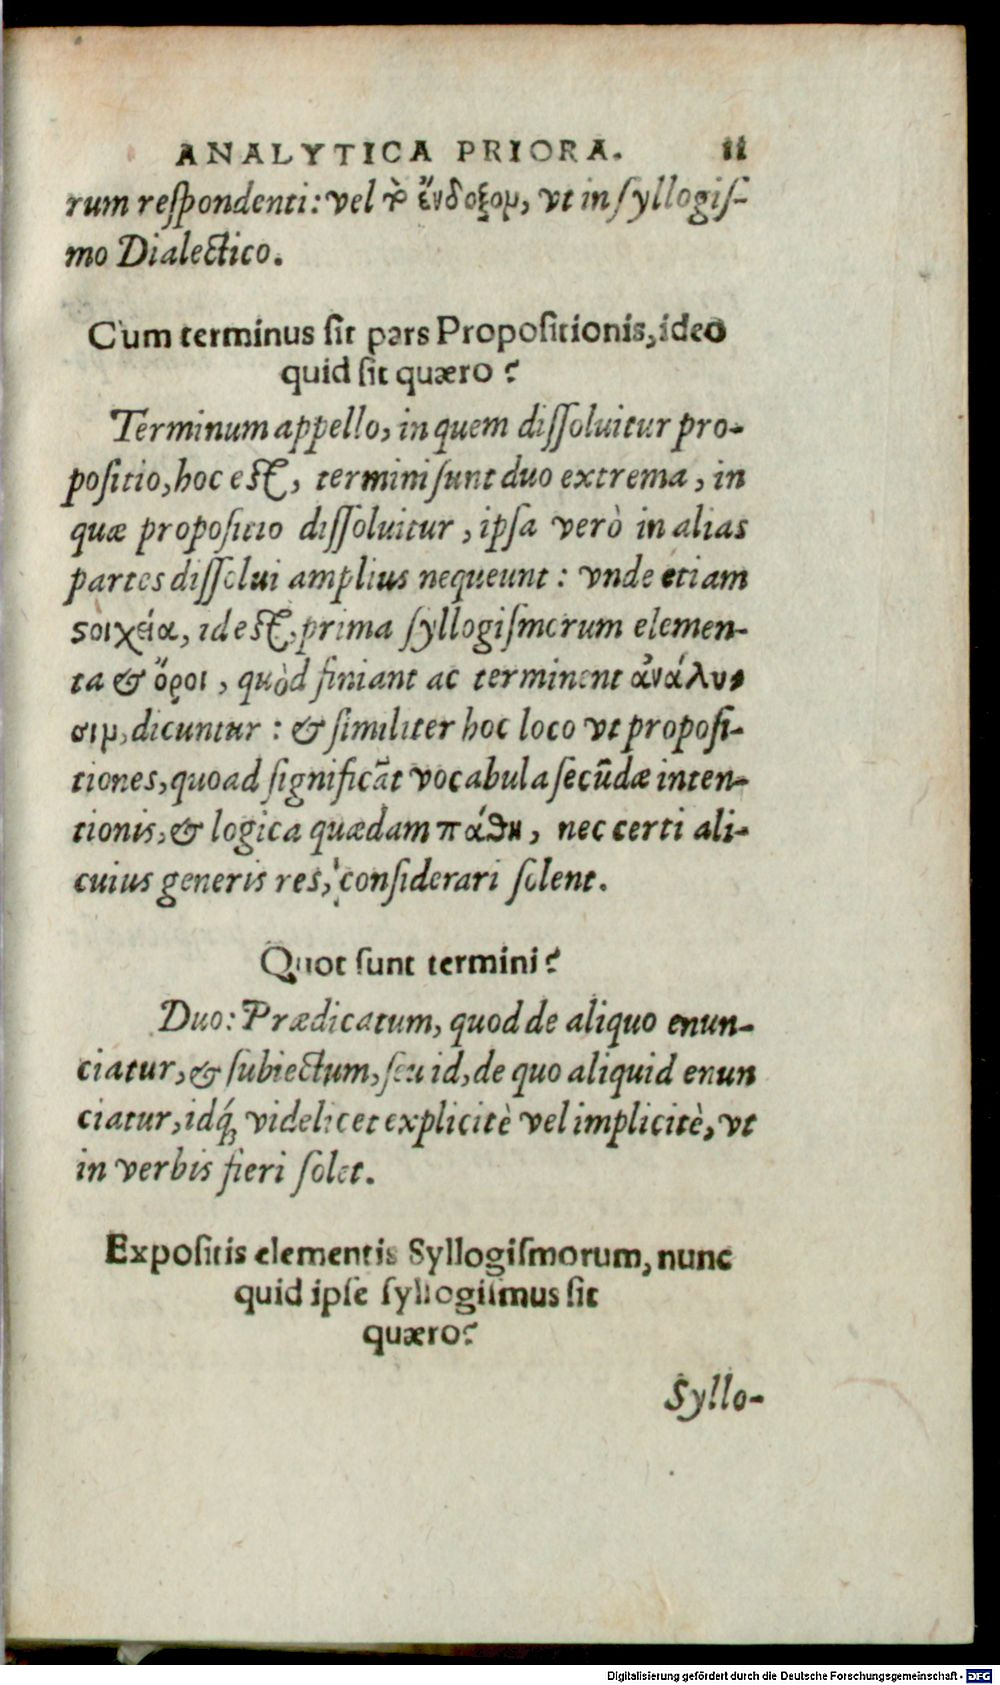 ANALYTICA PRIORA. 11
rum reſpondenti: vel τὸ ἔνδοξον, vt in ſyllogiſ-
mo Dialectico.
Cum terminus ſit pars Propoſitionis, ideo
quid ſit quæro?
Terminum appello, in quem diſſoluitur pro-
poſitio, hoc eſt, termini ſunt duo extrema, in
quæ propoſitio diſſoluitur, ipſa verò in alias
partes diſſolui amplius nequeunt: vnde etiam
ςοιχεία, id eſt, prima ſyllogiſmorum elemen-
ta & ὅροι, quòd finiant ac terminent ἀνάλυ-
σιν, dicuntur: & ſimiliter hoc loco vt propoſi-
tiones, quoad ſignificãt vocabula ſecũdæ inten-
tionis, & logica quædam πάθη, nec certi ali-
cuius generis res, conſiderari ſolent.
Quot ſunt termini?
Duo: Prædicatum, quod de aliquo enun-
ciatur, & ſubiectum, ſeu id, de quo aliquid enun
ciatur, idq́; videlicet explicitè vel implicitè, vt
in verbis fieri ſolet.
Expoſitis elementis Syllogiſmorum, nunc
quid ipſe ſyllogiſmus ſit
quæro?
Syllo-
Digitalisierung gefördert durch die Deutsche Forschungsgemeinschaft - DFG